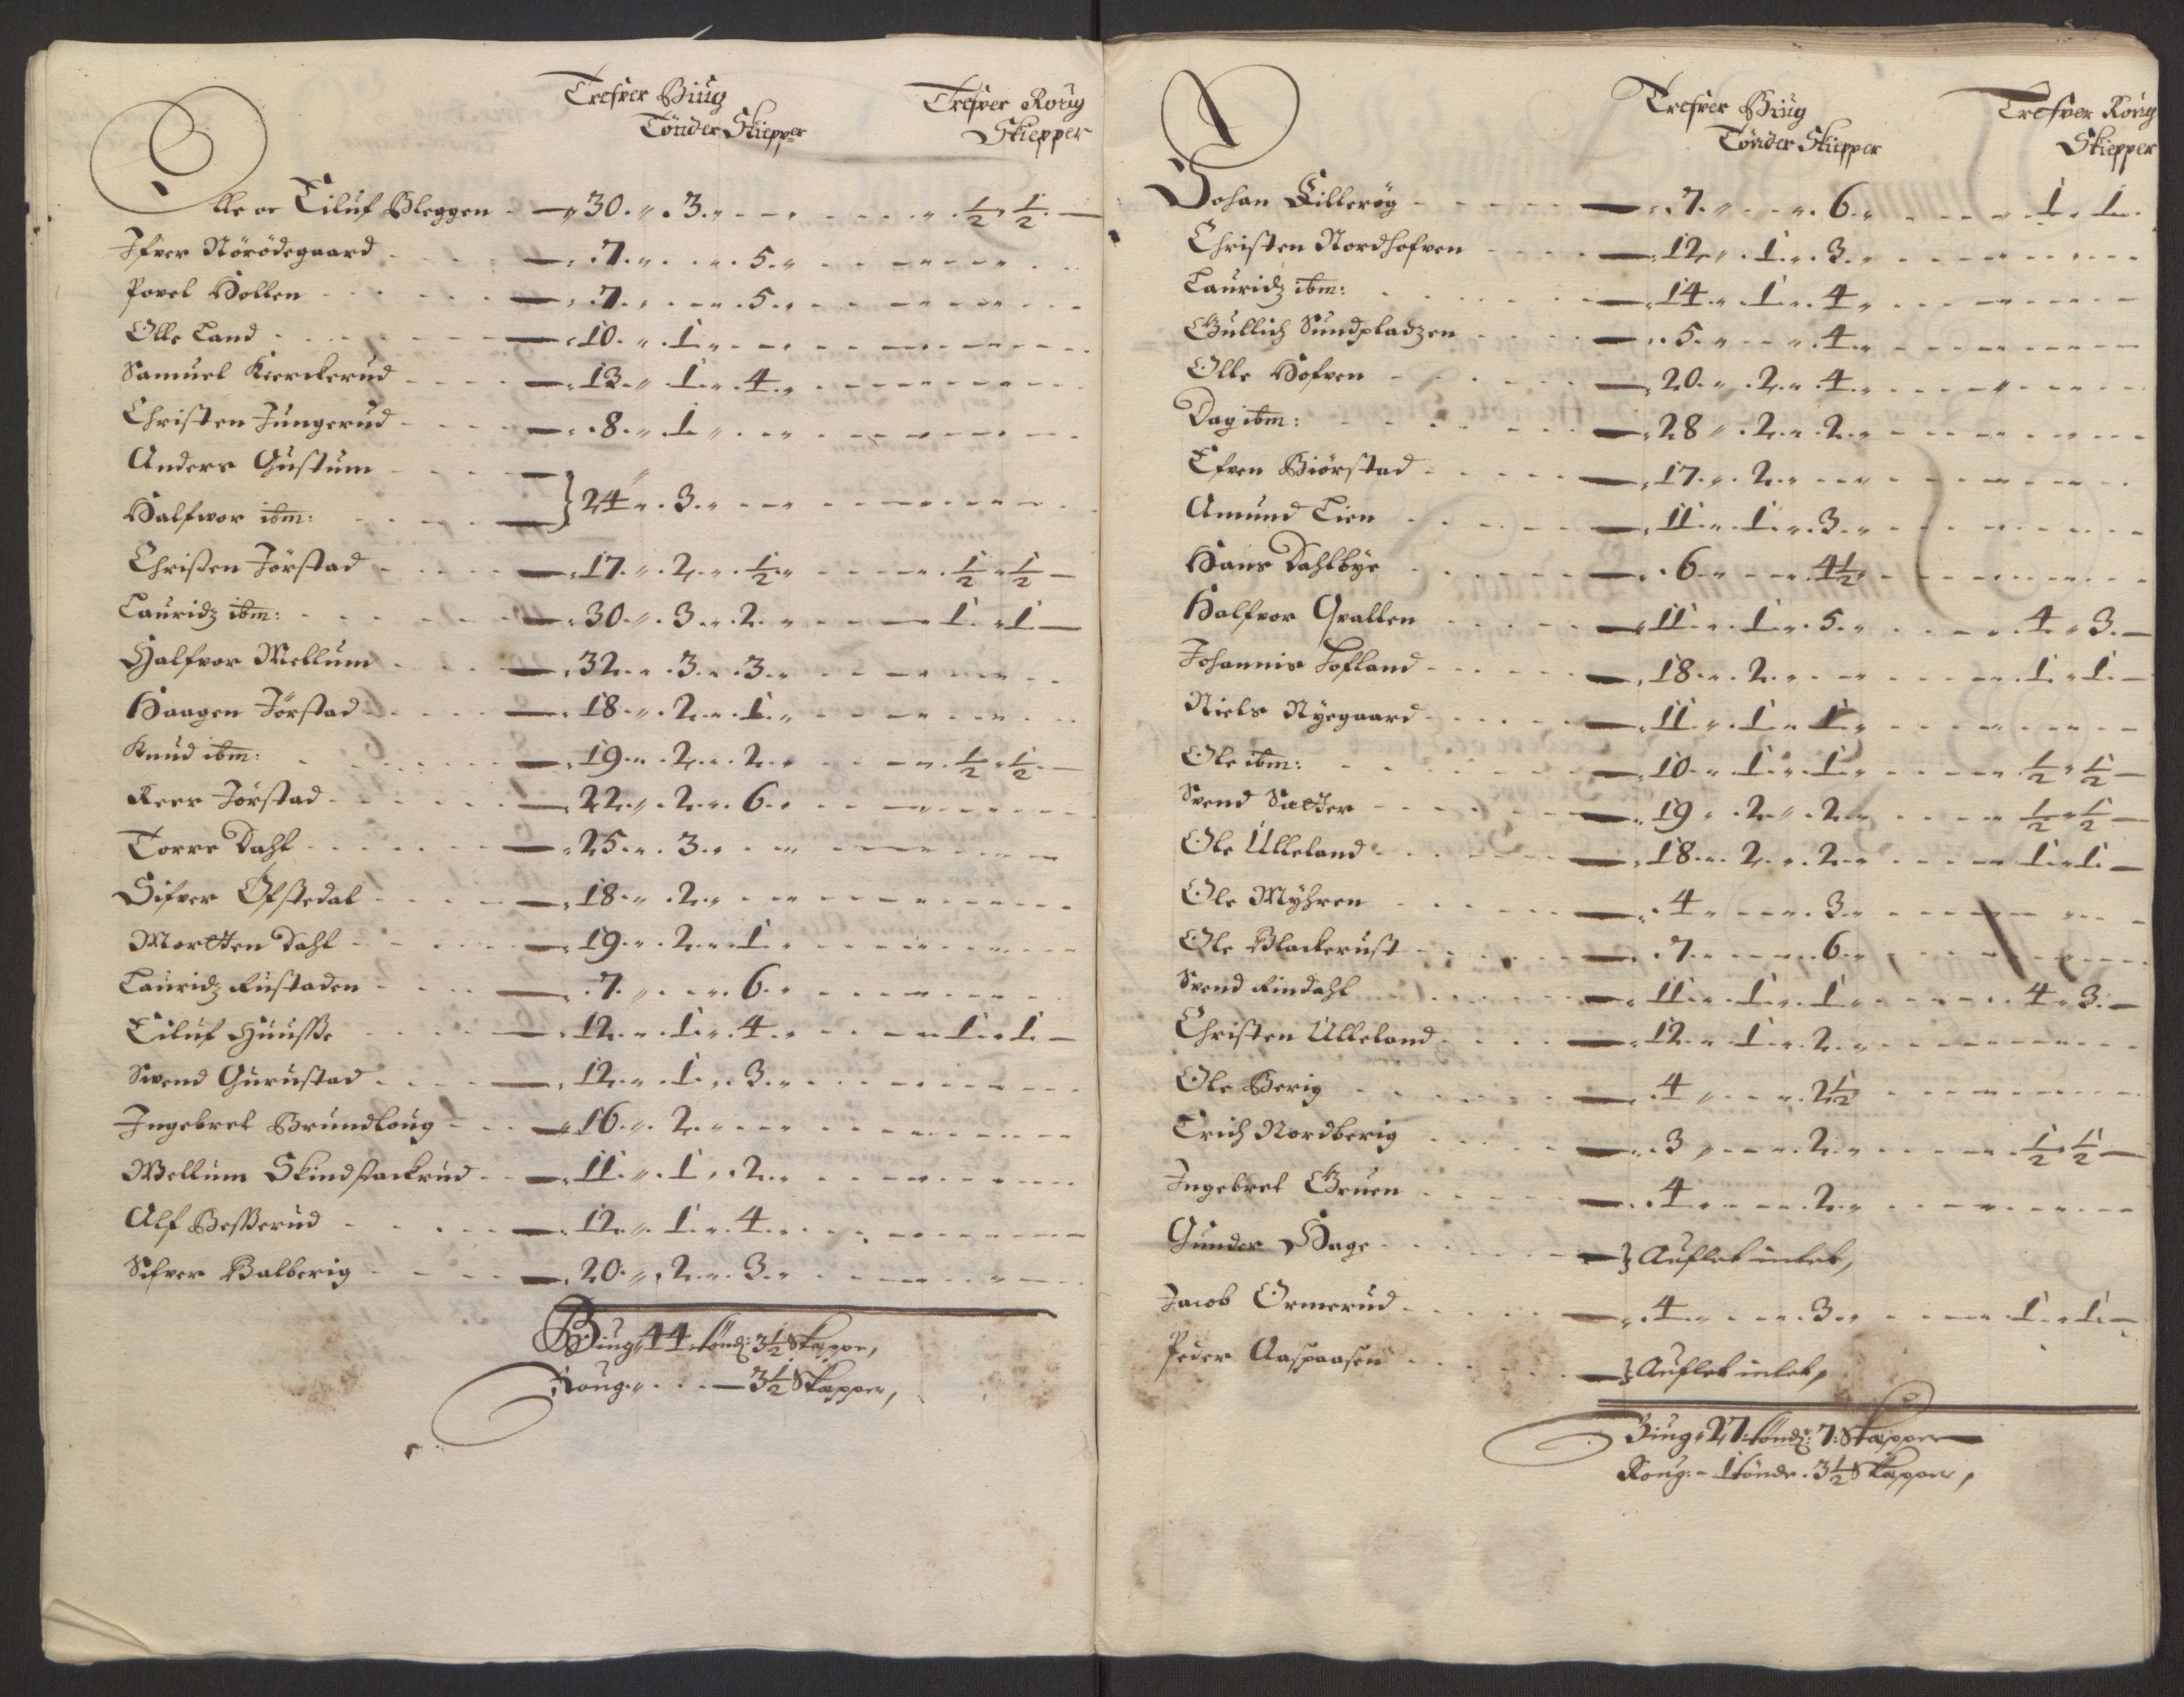 Trefver Biug Trefver Roug
Tönder Skiepper Skiepper
Olle oc Eiluf Bleggen 30. 3. ½ ½
Ifver Nörödegaard 7. 5.
Povel Hollen 7. 5.
Olle Land 10. 1.
Samuel Kierckerud 13. 1. 4.
Christen Jungerud 8. 1
Anders Gustum
Halfwor ibm: } 24 3.
Christen Jörstad 17. 2. ½ ½ ½
Lauridz ibm: 30. 3. 2. 1. 1.
Halfvor Mellum 32. 3. 3.
Haagen Jörstad 18. 2. 1.
Knud ibm: 19. 2. 2. ½ ½
Peer Jörstad 22. 2. 6.
Torre Dahl 25. 3.
Sifver Ofstedal 18. 2.
Mortten Dahl 19. 2. 1.
Lauridz Rustaden 7. 6.
Eiluf Huusße 12. 1. 4. 1. 1.
Svend Gurustad 12. 1. 3.
Ingebret Brundloug 16. 2.
Mellum Skindstackrud 11. 1. 2.
Alf Beßerud 12. 1. 4.
Sifver Balberig 20. 2. 3.
Biug 44 tönd: 3½ Skæpper,
Roug. 3½ Skæpper,
Trefver Biug Trefver Roug
Tönder Skiepper Skiepper
Johan Lillerög 7. 6. 1. 1.
Christen Nordhofven 12 1. 3.
Lauridz ibm: 14. 1. 4
Gullich Sundpladzen 5. 4.
Olle Hofven 20. 2. 4.
Dag ibm: 28 2. 2.
Efven Biörstad 17. 2.
Amund Lien 11. 1. 3.
Hans Dahlbye 6. 4½
Halfvor Qvallen 11. 1. 5. 4. 3.
Johannis Lofland 18. 2. 1. 1.
Niels Nyegaard 11 1 1
Ole ibm: 10. 1. 1. ½ ½
Svend Sætter 19 2. 2. ½ ½
Ole Ulleland 18. 2. 2. 1. 1.
Ole Myhren 4 3.
Ole Blackerust 7. 6.
Svend Rindahl 11. 1. 1. 4 3.
Christen Ulleland 12. 1. 2.
Ole Berig 4 2½
Erich Nordberig 3 2. ½ ½
Ingebret Gruen 4 2.
Gunder Hage } Auflet intet,
Jacob Ormerud 4. 3. 1. 1.
Peder Aaspaasen } Auflet intet,
Biug 27 tönd: 7. Skæpper
Roug: 1 tönde. 3½ Skæpper,